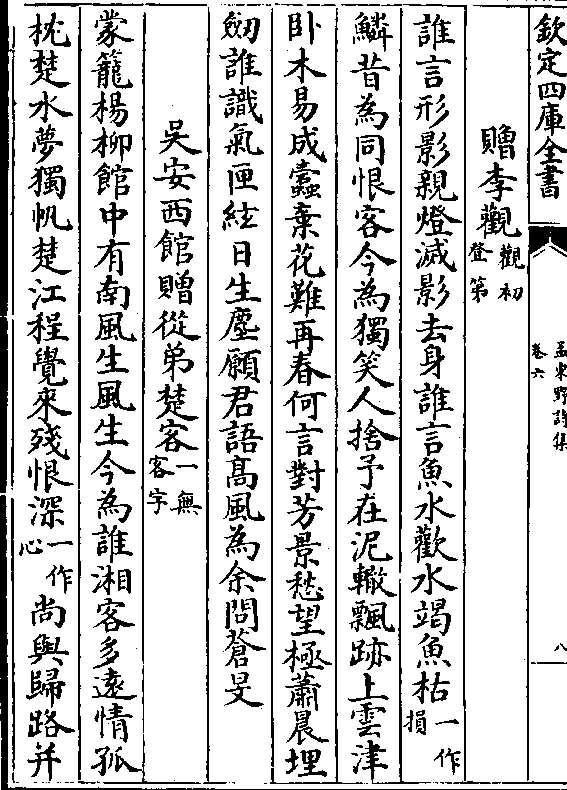 欽定四庫全書
孟東野詩集
卷六
八
贈李觀觀初登第
誰言形影親燈滅影去身誰言魚水歡水竭魚枯一作損
鱗昔為同恨客今為獨笑人捨予在泥轍飄跡上雲津
卧木易成蠹棄花難再春何言對芳景愁望極蕭晨埋
劒誰識氣匣絃日生塵願君語高風為余問蒼旻
吳安西館贈從弟楚客一無客字
蒙籠楊柳館中有南風生風生今為誰湘客多遠情孤
枕楚水夢獨帆楚江程覺來殘恨深一作心尚與歸路并